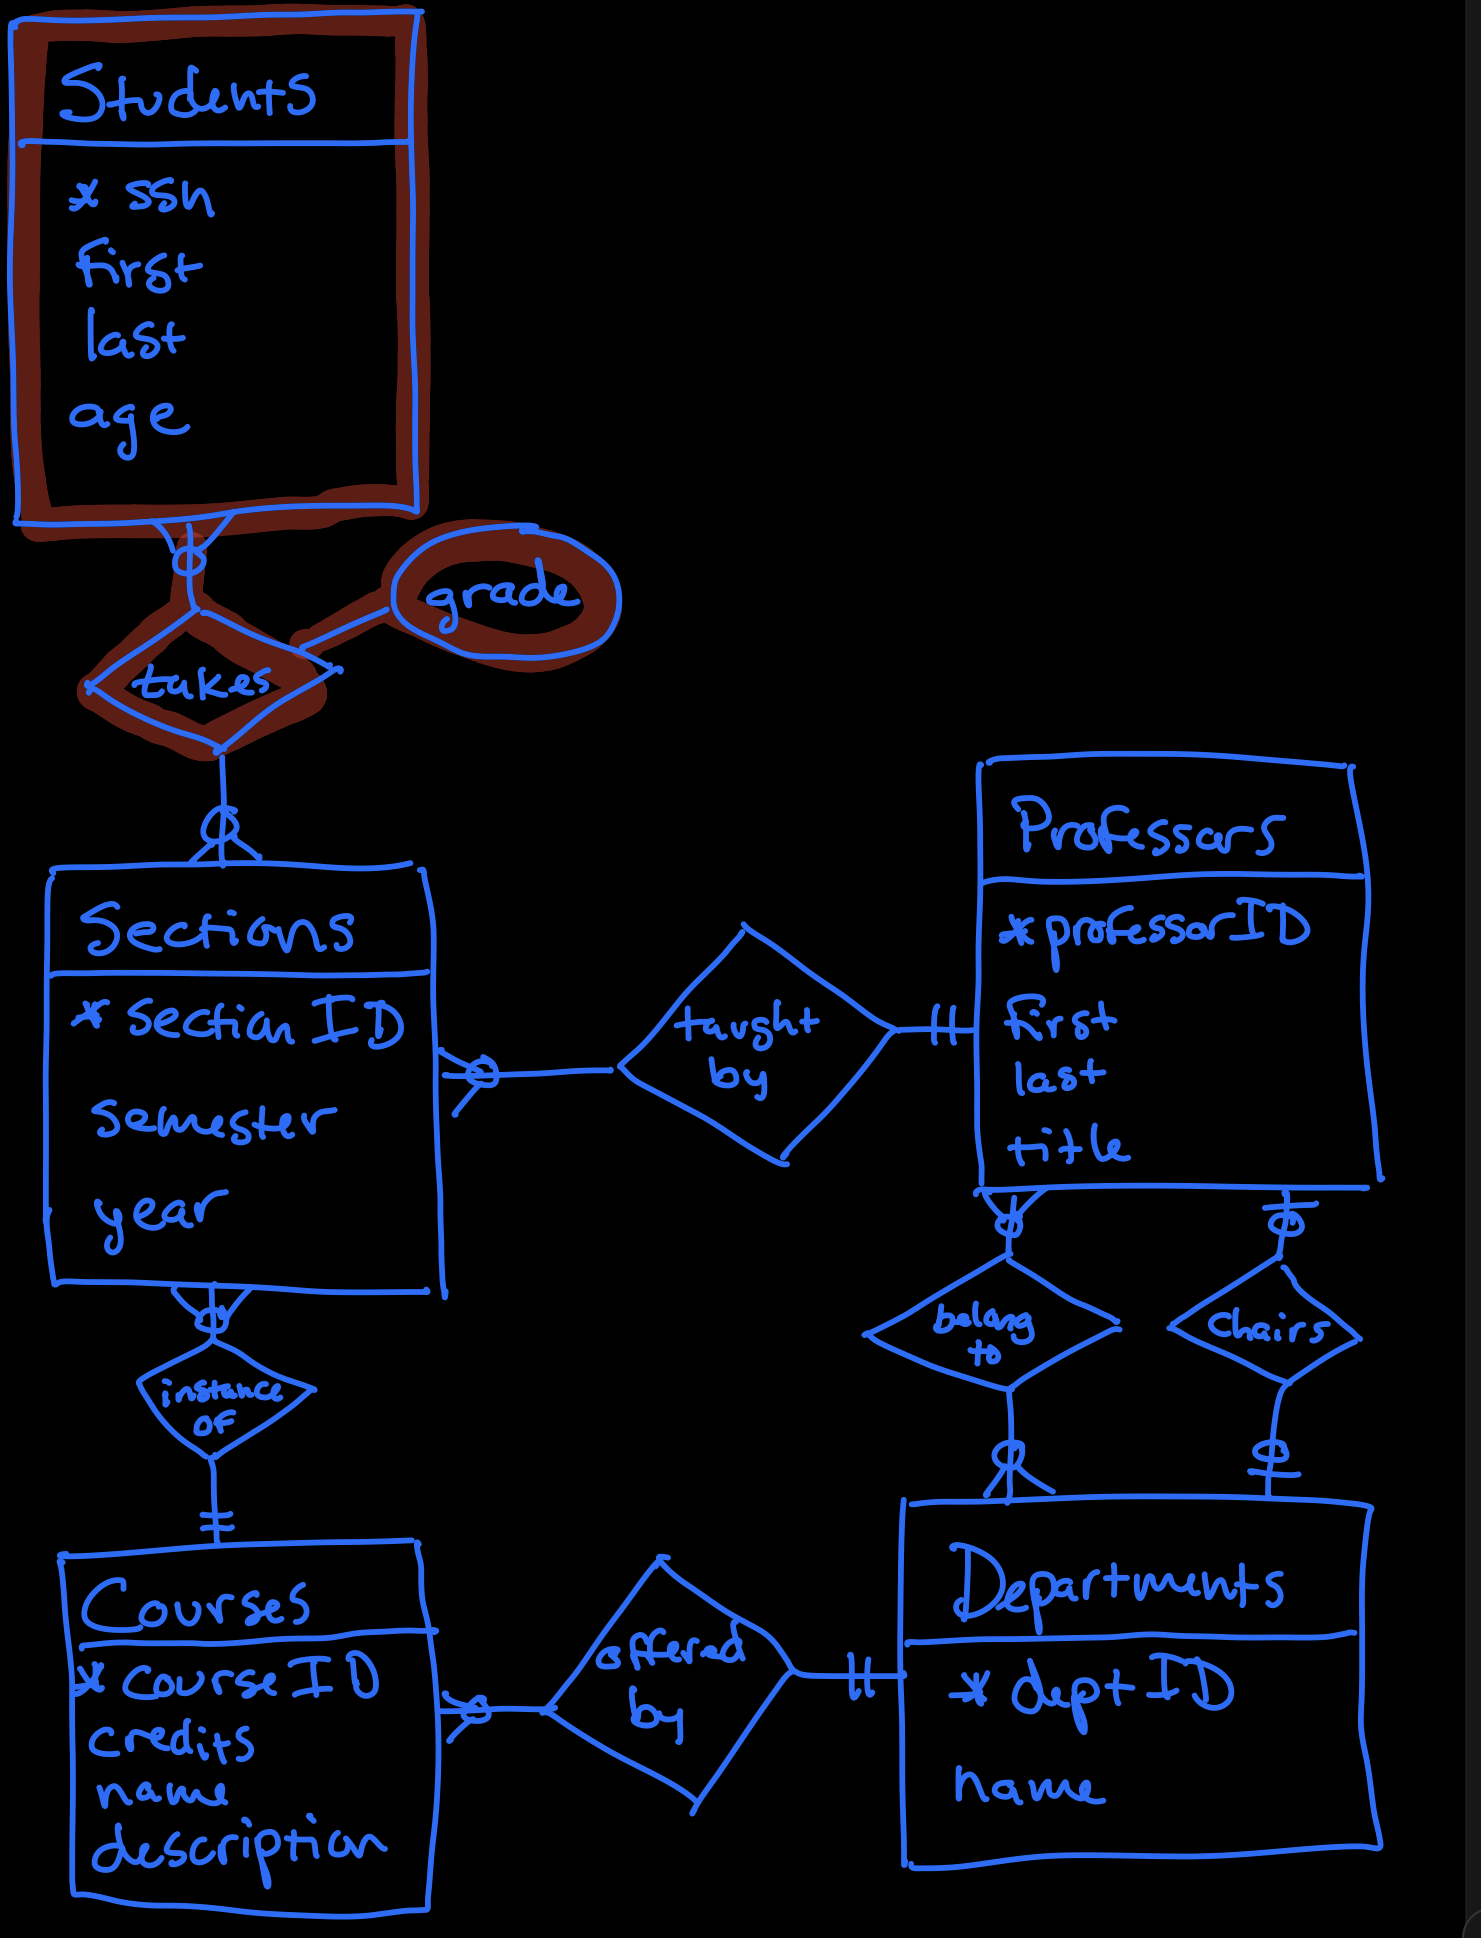 Students
* ssn
first
last
age
grade
takes
Sections
* section ID
semester
year
taught
by
Professors
* professorID
first
last
title
belong
to
chairs
instance
of
Courses
* course ID
credits
name
description
offered
by
Departments
* dept ID
name